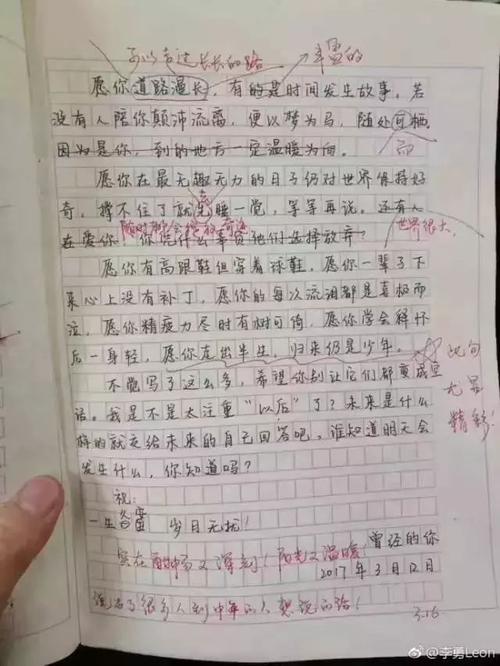 可以走过长长的路 丰富的
愿你道路漫长，有的是时间发生故事。若
没有人陪你颠沛流离，便以梦为马，随处可栖。
而
因为是你，到的地方一定温暖为向。
愿你在最无趣无力的日子仍对世界保持好
奇，撑不住了就先睡一觉，等等再说。还有人
在爱你，你凭什么事责他们选择放弃？
世界很大
愿你有高跟鞋但穿着球鞋，愿你一辈子下
来心上没有补丁，愿你的每次流泪都是喜极而
泣，愿你精疲力尽时有树可倚，愿你学会释怀
后一身轻，愿你走出半生，归来仍是少年。
此句
尤显
精彩
不觉写了这么多，希望你别让它们都变成空
话。我是不是太注重“以后”了？未来是什么
样的就交给未来的自己回答吧，谁知道明天会
发生什么，你知道吗？
祝：
一生备蜜 岁月无扰！
曾经的你
实在酣畅又深刻！阳光又温暖
2017年3月12日
说出了很多人到中年的人想说的话！
3.16
@李勇Leon